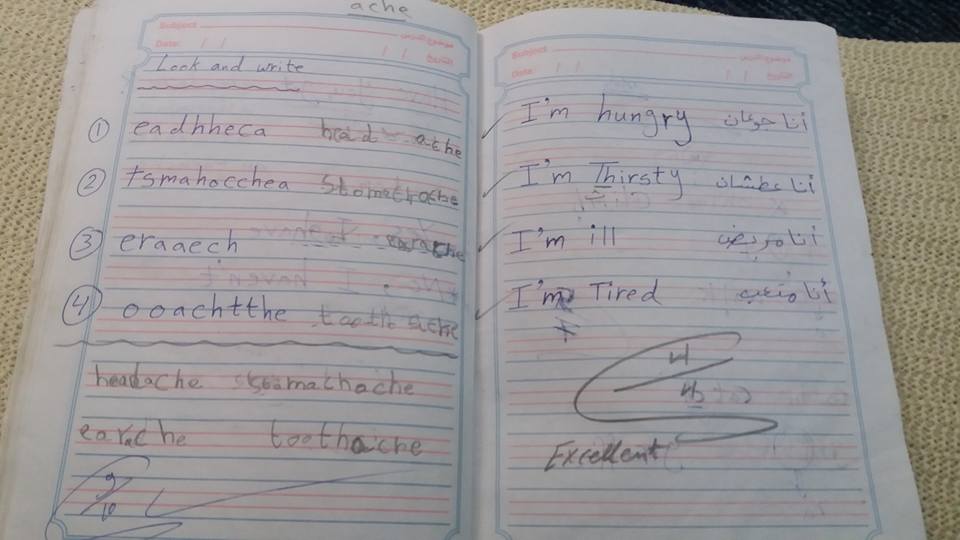 ache
Subject
Date: / /
Look and write
1 eadhheca head ache
2 tsmahocchea
3 eraaech earache
4 ooachtthe tooth ache
headache stomachache
earache toothache
9/10
Subject موضوع الدرس
Date: / / التاريخ / /
I'm hungry أنا جوعان
I'm Thirsty أنا عطشان
I'm ill أنا مريض
I'm Tired أنا متعب
Excellent